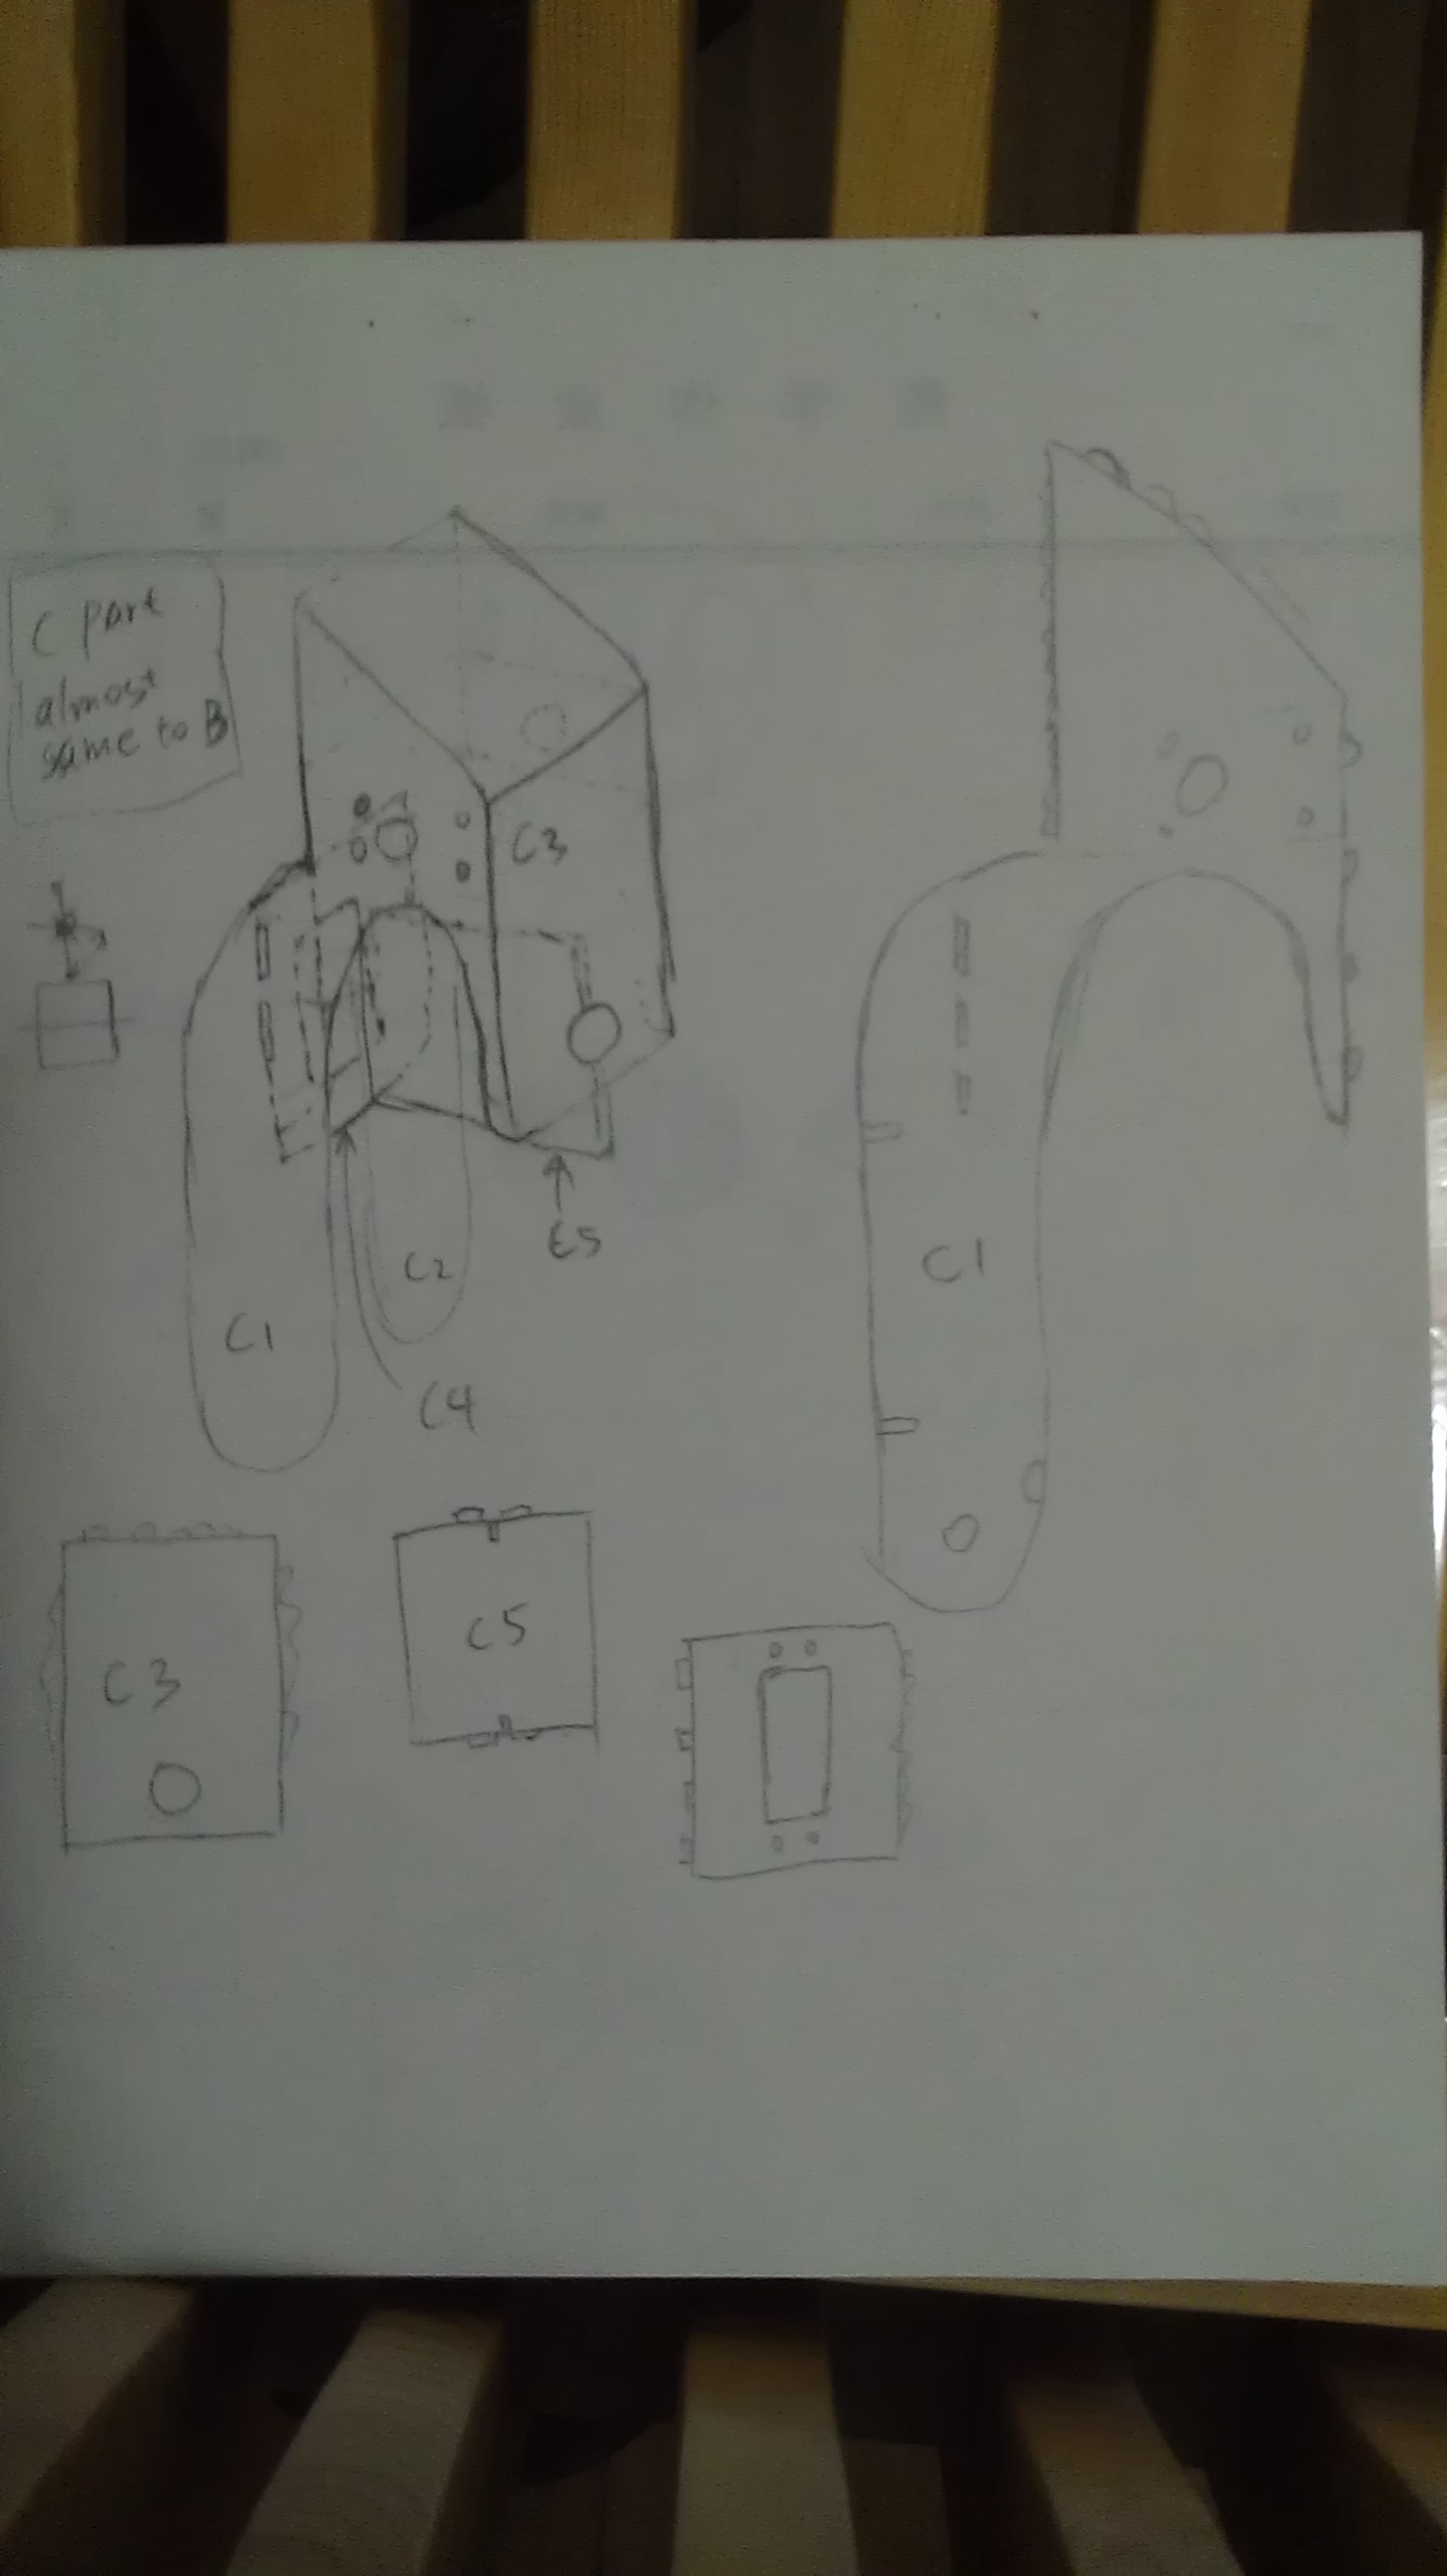 C part
almost
same to B
C3
C1
C2
C5
C1
C4
C3
C5